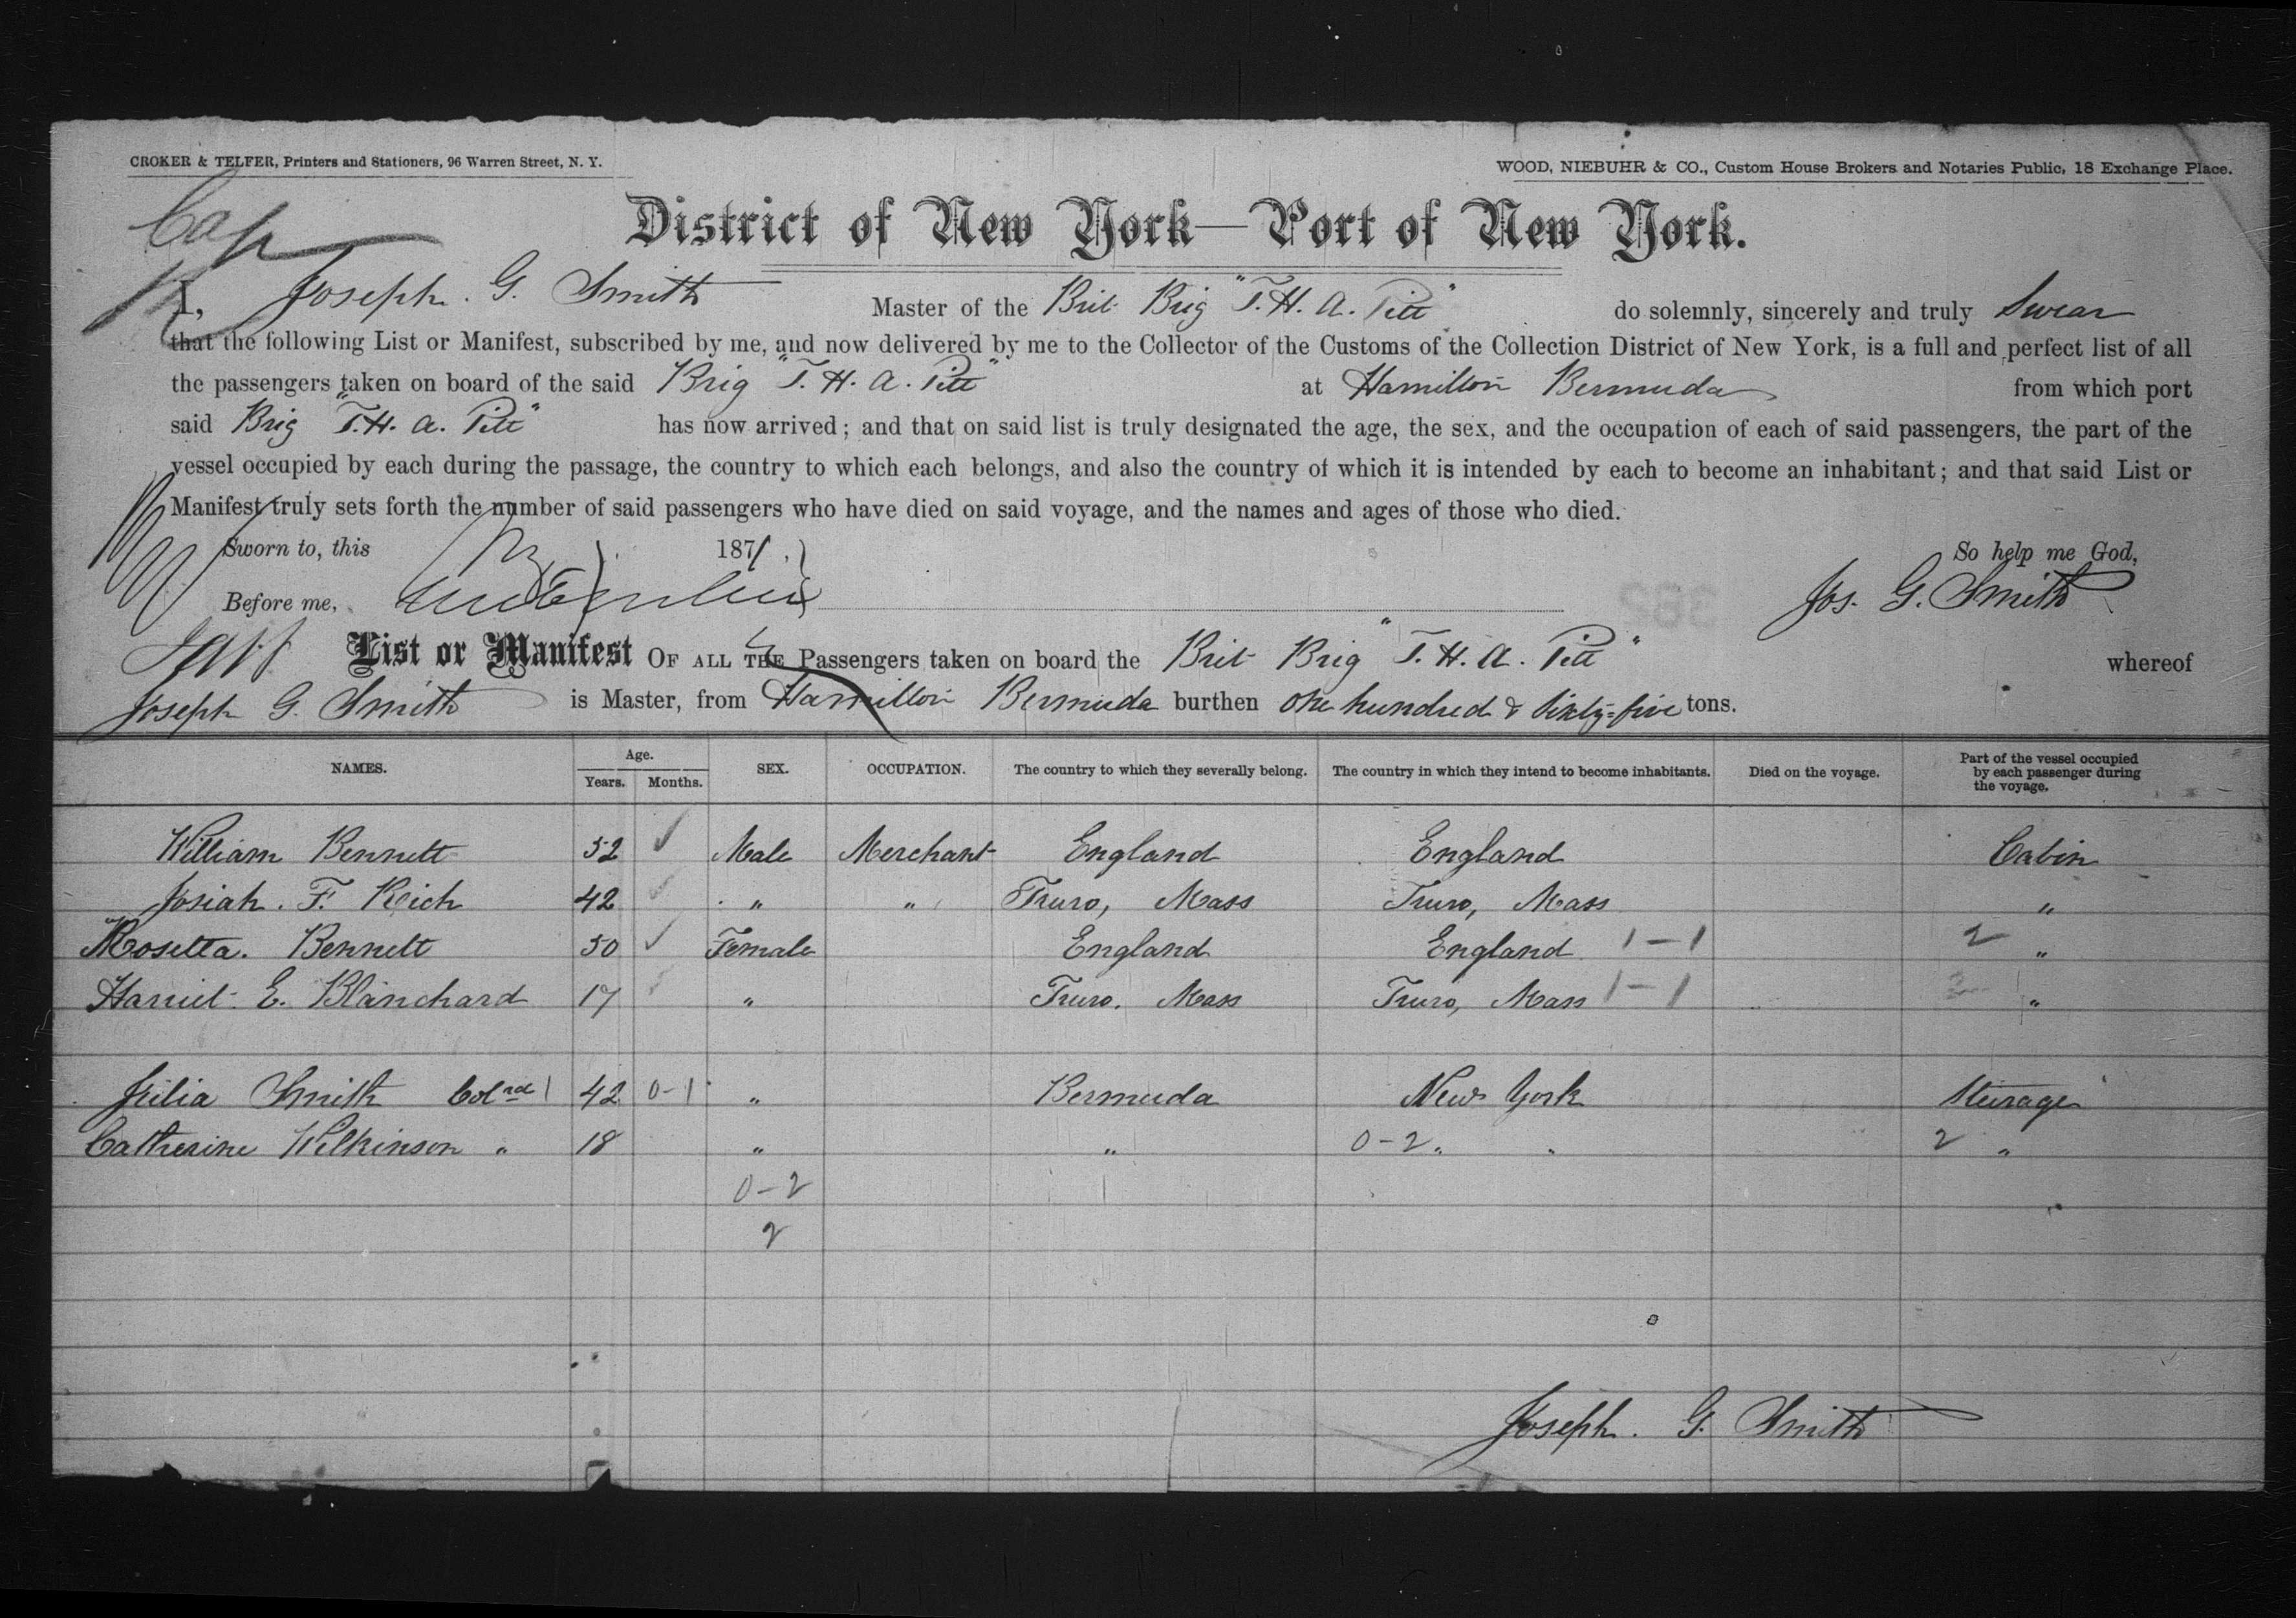 CROKER & TELFER, Printers and Stationers, 96 Warren Street, N. Y.
WOOD, NIEBUHR & CO., Custom House Brokers and Notaries Public, 18 Exchange Place.
District of New York—Port of New York.
I, Joseph. G. Smith Master of the Brit Brig "T. H. A. Pitt" do solemnly, sincerely and truly Swear
that the following List or Manifest, subscribed by me, and now delivered by me to the Collector of the Customs of the Collection District of New York, is a full and perfect list of all
the passengers taken on board of the said Brig "T. H. A. Pitt" at Hamilton Bermuda from which port
said Brig "T. H. A. Pitt" has now arrived; and that on said list is truly designated the age, the sex, and the occupation of each of said passengers, the part of the
vessel occupied by each during the passage, the country to which each belongs, and also the country of which it is intended by each to become an inhabitant; and that said List or
Manifest truly sets forth the number of said passengers who have died on said voyage, and the names and ages of those who died.
Sworn to, this 1871, So help me God,
Before me, Jos. G. Smith
List or Manifest OF ALL THE Passengers taken on board the Brit Brig "T. H. A. Pitt" whereof
Joseph G. Smith is Master, from Hamilton Bermuda burthen One hundred & Sixty-five tons.
NAMES. Age. Years. Months. SEX. OCCUPATION. The country to which they severally belong. The country in which they intend to become inhabitants. Died on the voyage. Part of the vessel occupied by each passenger during the voyage.
William Bennett 52 ✓ Male Merchant England England Cabin
Josiah. F. Rich 42 ✓ " " Truro, Mass Truro, Mass "
Rosetta. Bennett 50 ✓ Female England England 1-1 2 "
Harriet E. Blanchard 17 ✓ " Truro, Mass Truro, Mass 1-1 "
Julia Smith Col'rd 1 42 0-1 " Bermuda New York Steerage
Catherine Wilkinson " 18 " " 0-2 " " 2 "
0-2
2
Joseph. G. Smith